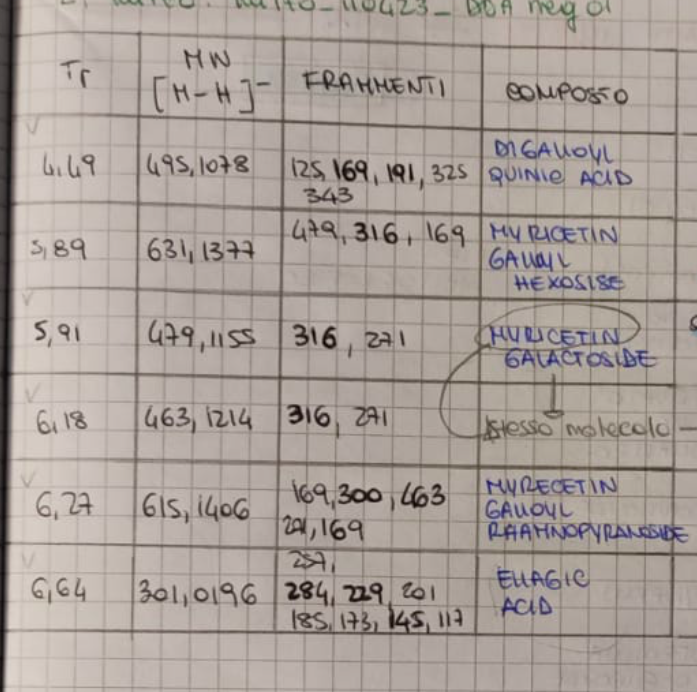 MIRTO_110423_DDA neg 01
Tr
MW
[M-H]⁻
FRAMMENTI
COMPOSTO
4,49
495,1078
125, 169, 191, 325
343
DIGALLOYL
QUINIC ACID
5,89
631,1377
479, 316, 169
MYRICETIN
GALLOYL
HEXOSISE
5,91
479,1155
316, 271
MYRICETIN
GALACTOSIDE
6,18
463,1214
316, 271
stesso molecola -
6,27
615,1406
169,300,463
271,169
MYRECETIN
GALLOYL
RHAMNOPYRANOSIDE
6,64
301,0196
257,
284, 229, 201
185, 173, 145, 117
ELLAGIC
ACID